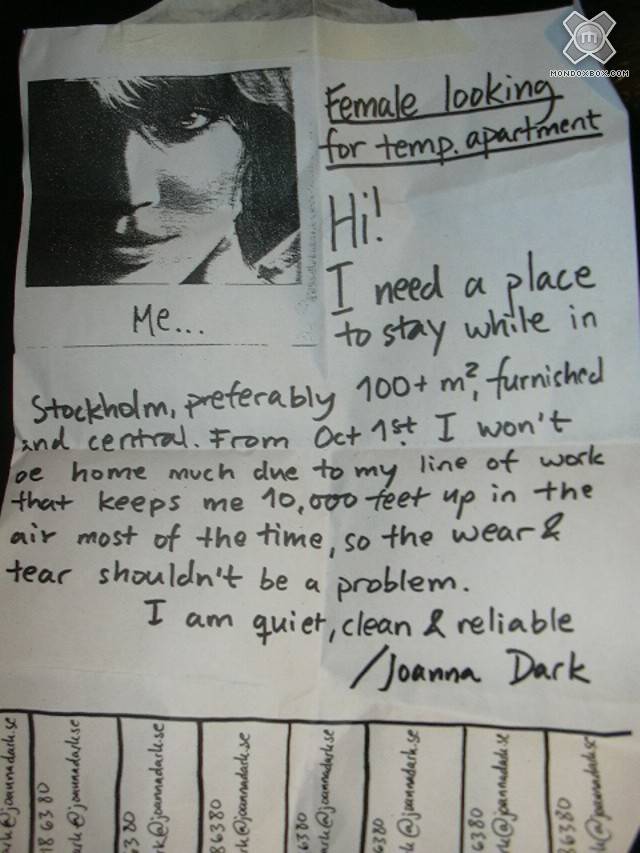 m
MONDOXBOX.COM
Female looking
for temp. apartment
Hi!
I need a place
to stay while in
Me...
Stockholm, preferably 100+ m², furnished
and central. From Oct 1st I won't
be home much due to my line of work
that keeps me 10,000 feet up in the
air most of the time, so the wear &
tear shouldn't be a problem.
I am quiet, clean & reliable
/Joanna Dark
rk@joannadark.se
18 6380
ark@joannadark.se
6380
rk@joannadark.se
86380
rk@joannadark.se
6380
rk@joannadark.se
6380
rk@joannadark.se
6380
rk@joannadark.se
86380
rk@joannadark.se